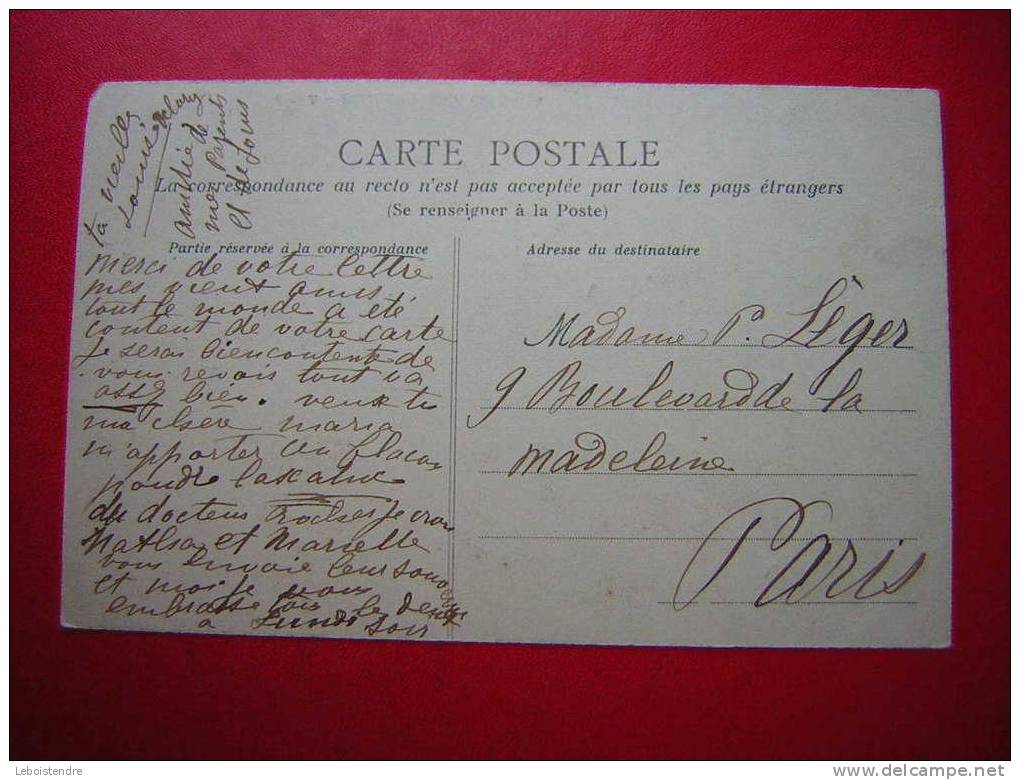 CARTE POSTALE
La correspondance au recto n'est pas acceptée par tous les pays étrangers
(Se renseigner à la Poste)
Partie réservée à la correspondance
merci de votre lettre
mes vieux amis
tout le monde a été
content de votre carte
je serai bien contente de
vous revois tout va
assez bien. veux tu
ma chère maria
m'apporter un flacon
poudre laxative
du docteur je crois
et Marcelle
vous envoie leur
et moi je vous
embrasse tous les deux
a Lundi soir
ta vieille
Louise
amitié de
mes Parents
et de
Adresse du destinataire
Madame P. Léger
9 Boulevard de la
madeleine
Paris
Leboistendre
www.delcampe.net